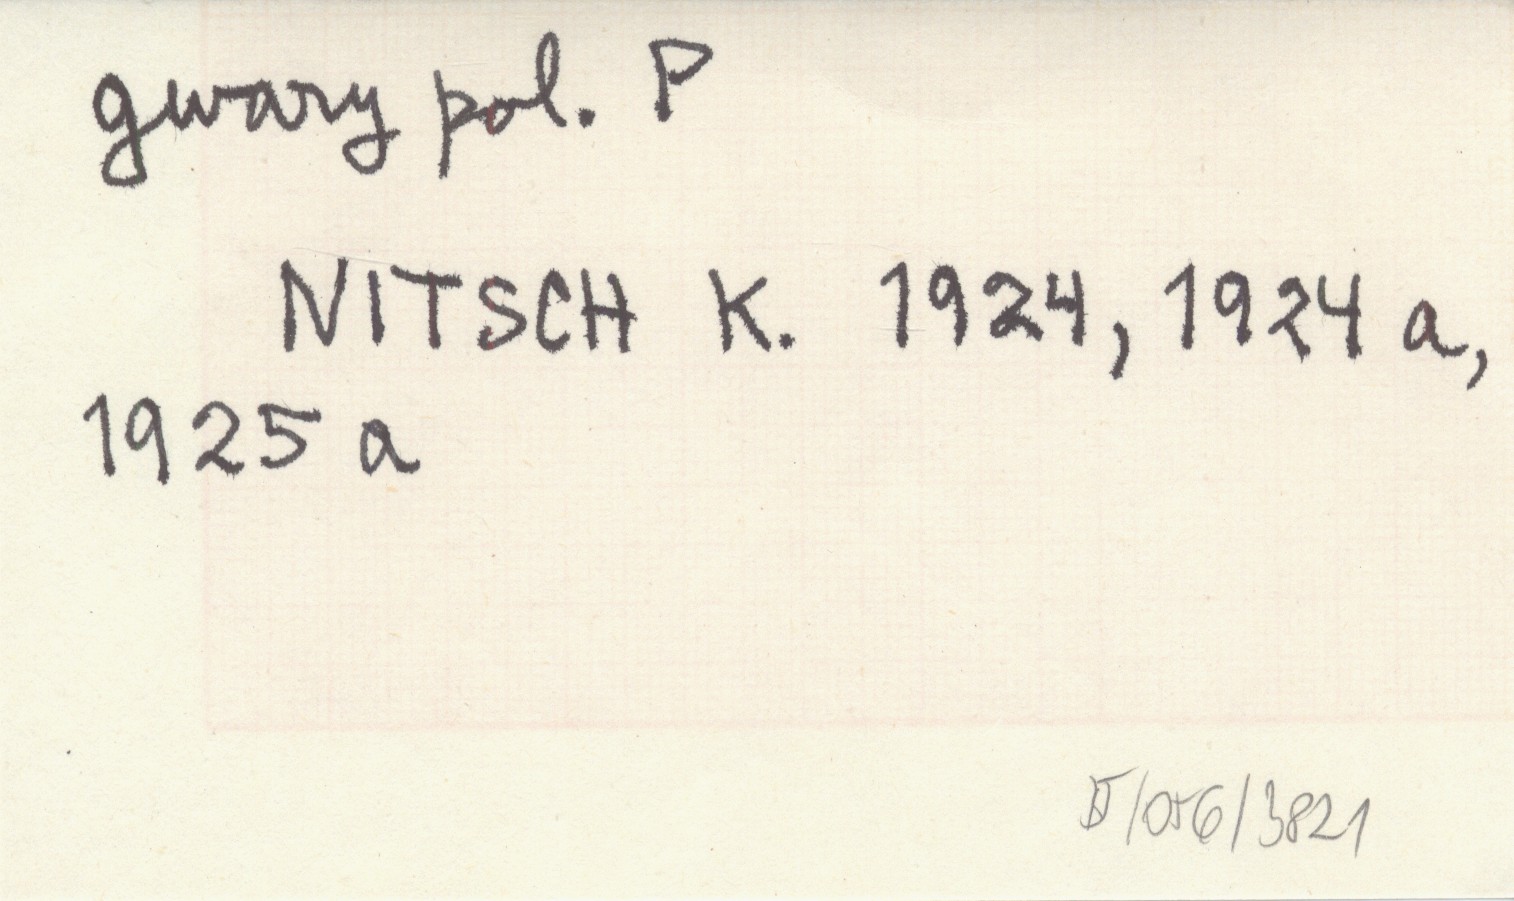 gwary pol. P
NITSCH K. 1924, 1924 a,
1925 a
/056/3821